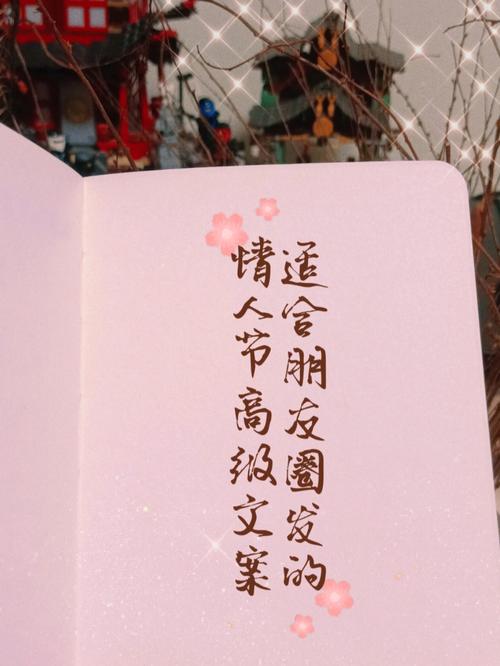 适合朋友圈发的
情人节高级文案